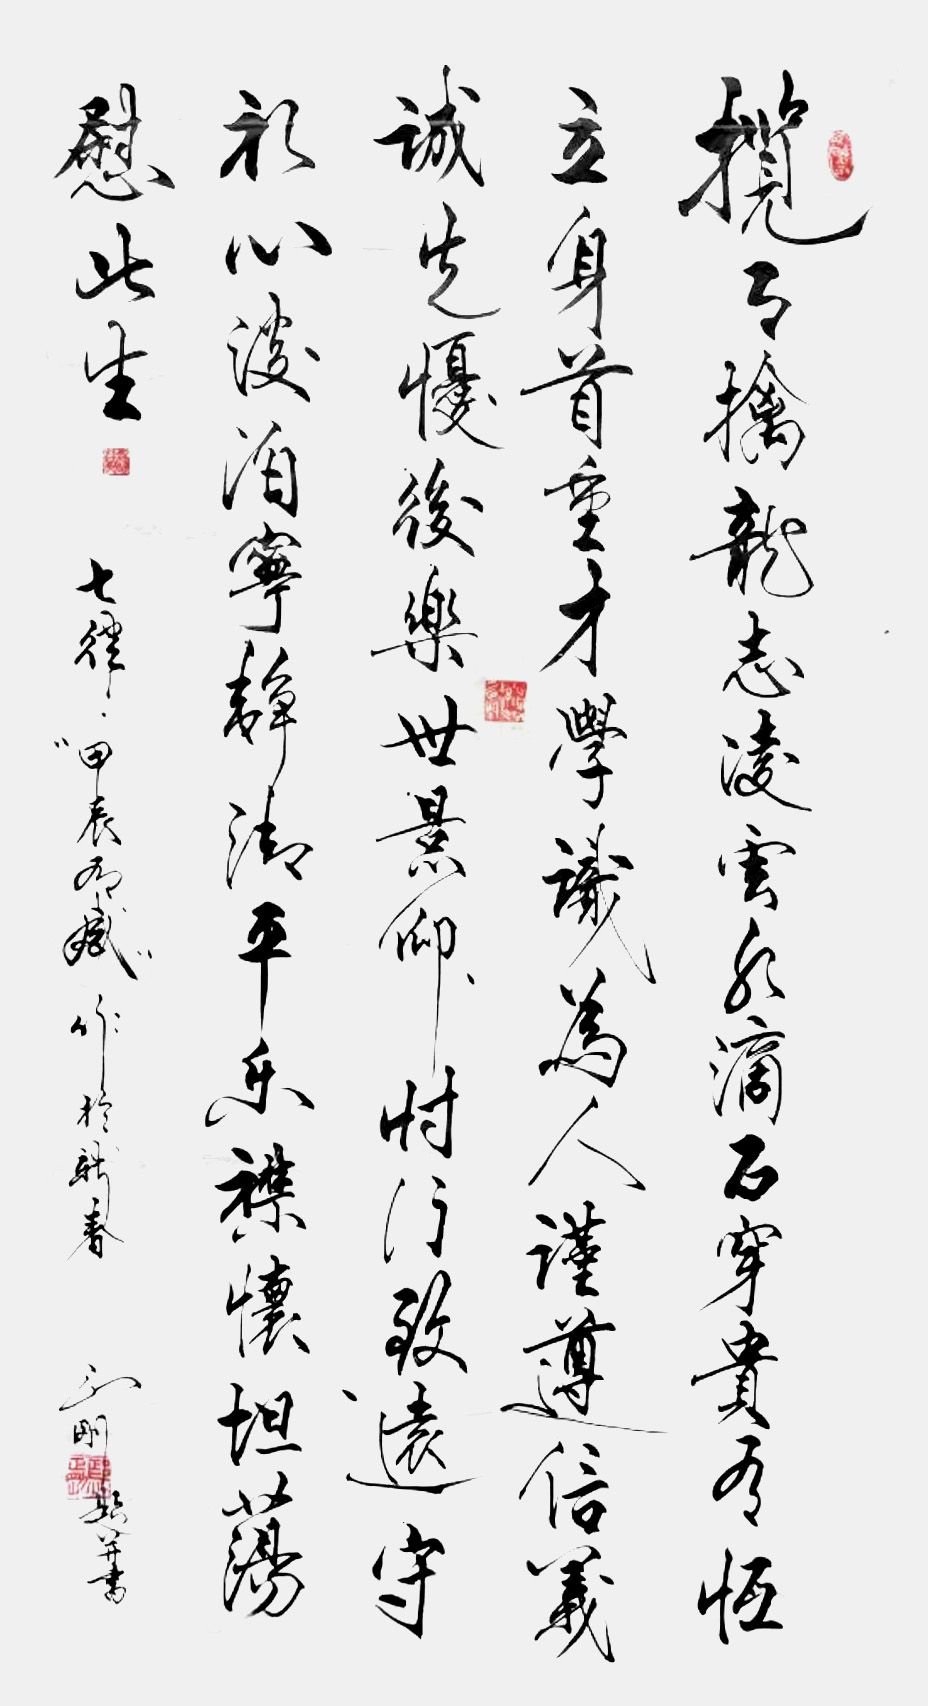 攬月擒龍志淩雲水滴石穿貴有恆
立身首重才學識為人謹遵信義
誠先懮後樂世景仰忖行致遠守
初心淡泊寧靜御平樂襟懷坦蕩
慰此生
七律·"甲辰有感"作於新春
剛 並書